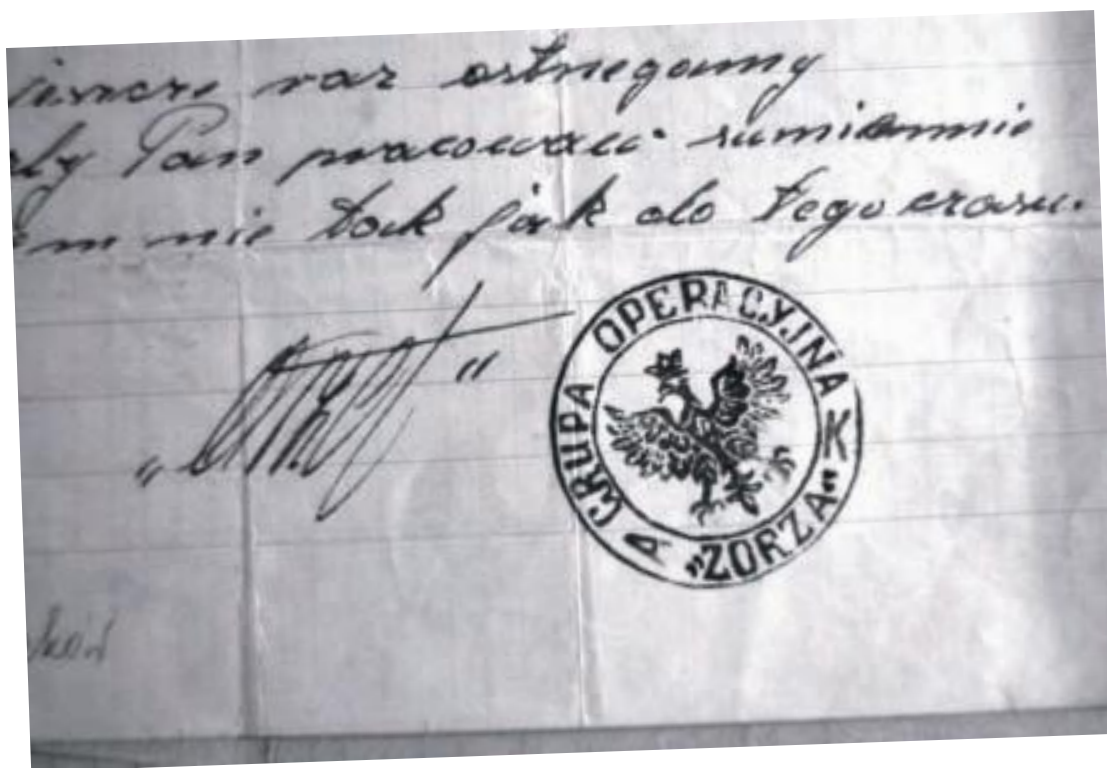 jeszcze raz ostrzegamy
Pan pracować sumiennie
nie tak jak do tego czasu.
GRUPA OPERACYJNA
„ZORZA“
A K